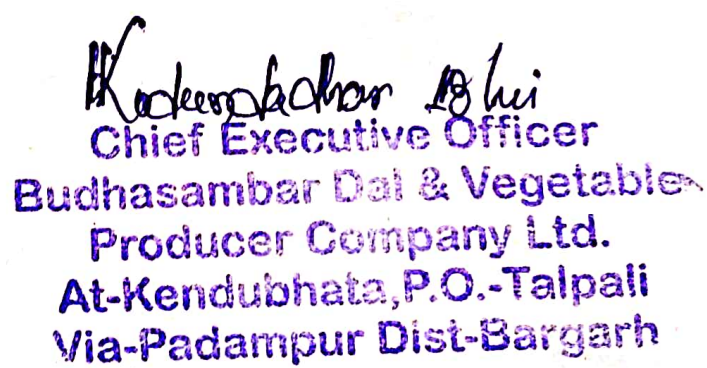 Chief Executive Officer
Budhasambar Dal & Vegetable
Producer Company Ltd.
At-Kendubhata,P.O.-Talpali
Via-Padampur Dist-Bargarh